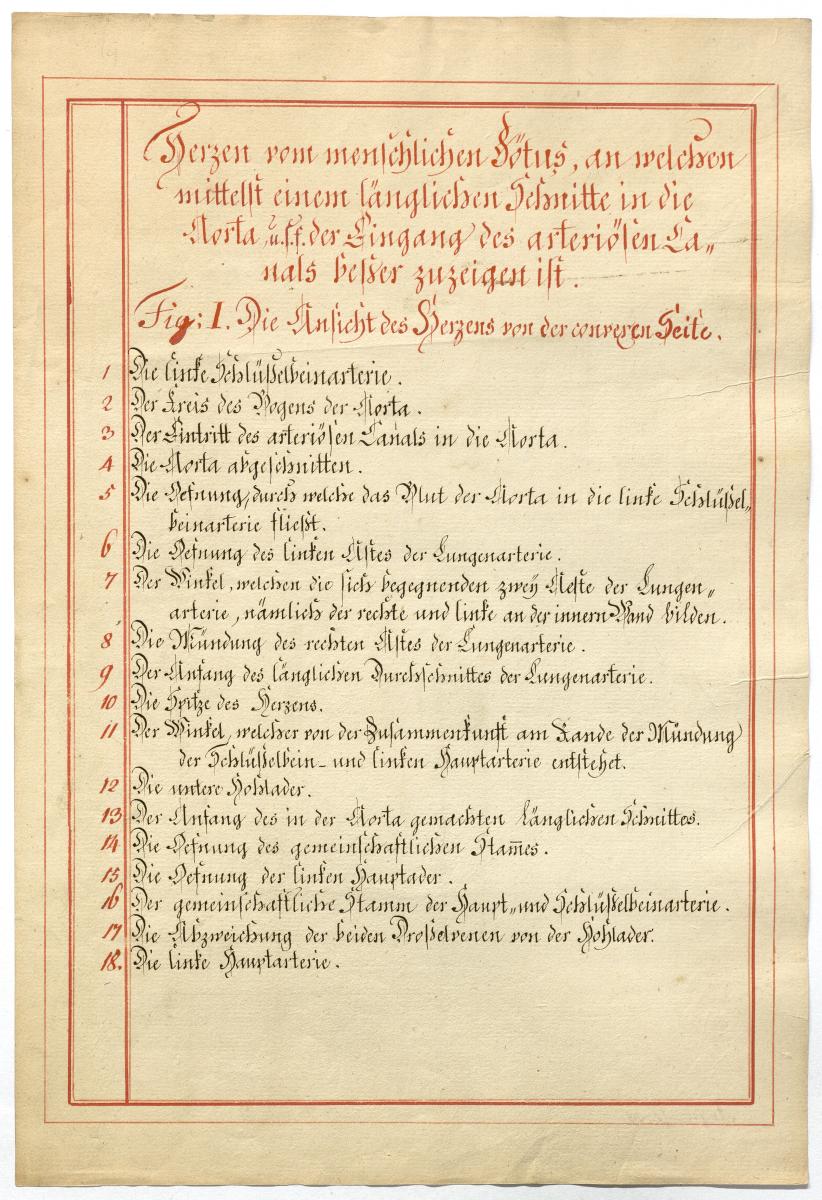 Herzen vom menschlichen Fötus, an welchen
mittelst einem länglichen Schnitte in die
Aorta u.s.f. der Eingang des arteriösen Ca„
nals beßer zuzeigen ist.
Fig: I. Die Ansicht des Herzens von der convexen Seite.
1 Die linke Schlüßelbeinarterie.
2 Der Kreis des Bogens der Aorta.
3 Der Eintritt des arteriösen Canals in die Aorta.
4 Die Aorta abgeschnitten.
5 Die Oefnung, durch welche das Blut der Aorta in die linke Schlüßel„
beinarterie fließt.
6 Die Oefnung des linken Astes der Lungenarterie.
7 Der Winkel, welchen die sich begegnenden zwey Aeste der Lungen„
arterie, nämlich der rechte und linke an der innern Wand bilden.
8 Die Mündung des rechten Astes der Lungenarterie.
9 Der Anfang des länglichen Durchschnittes der Lungenarterie.
10 Die Spitze des Herzens.
11 Der Winkel, welcher von der Zusammenkunft am Rande der Mündung
der Schlüßelbein- und linken Hauptarterie entstehet.
12 Die untere Hohlader.
13 Der Anfang des in der Aorta gemachten länglichen Schnittes.
14 Die Oefnung des gemeinschaftlichen Stam̅es.
15 Die Oefnung der linken Hauptader.
16 Der gemeinschaftliche Stamm der Haupt„ und Schlüßelbeinarterie.
17 Die Abzweichung der beiden Droßelvenen von der Hohlader.
18. Die linke Hauptarterie.